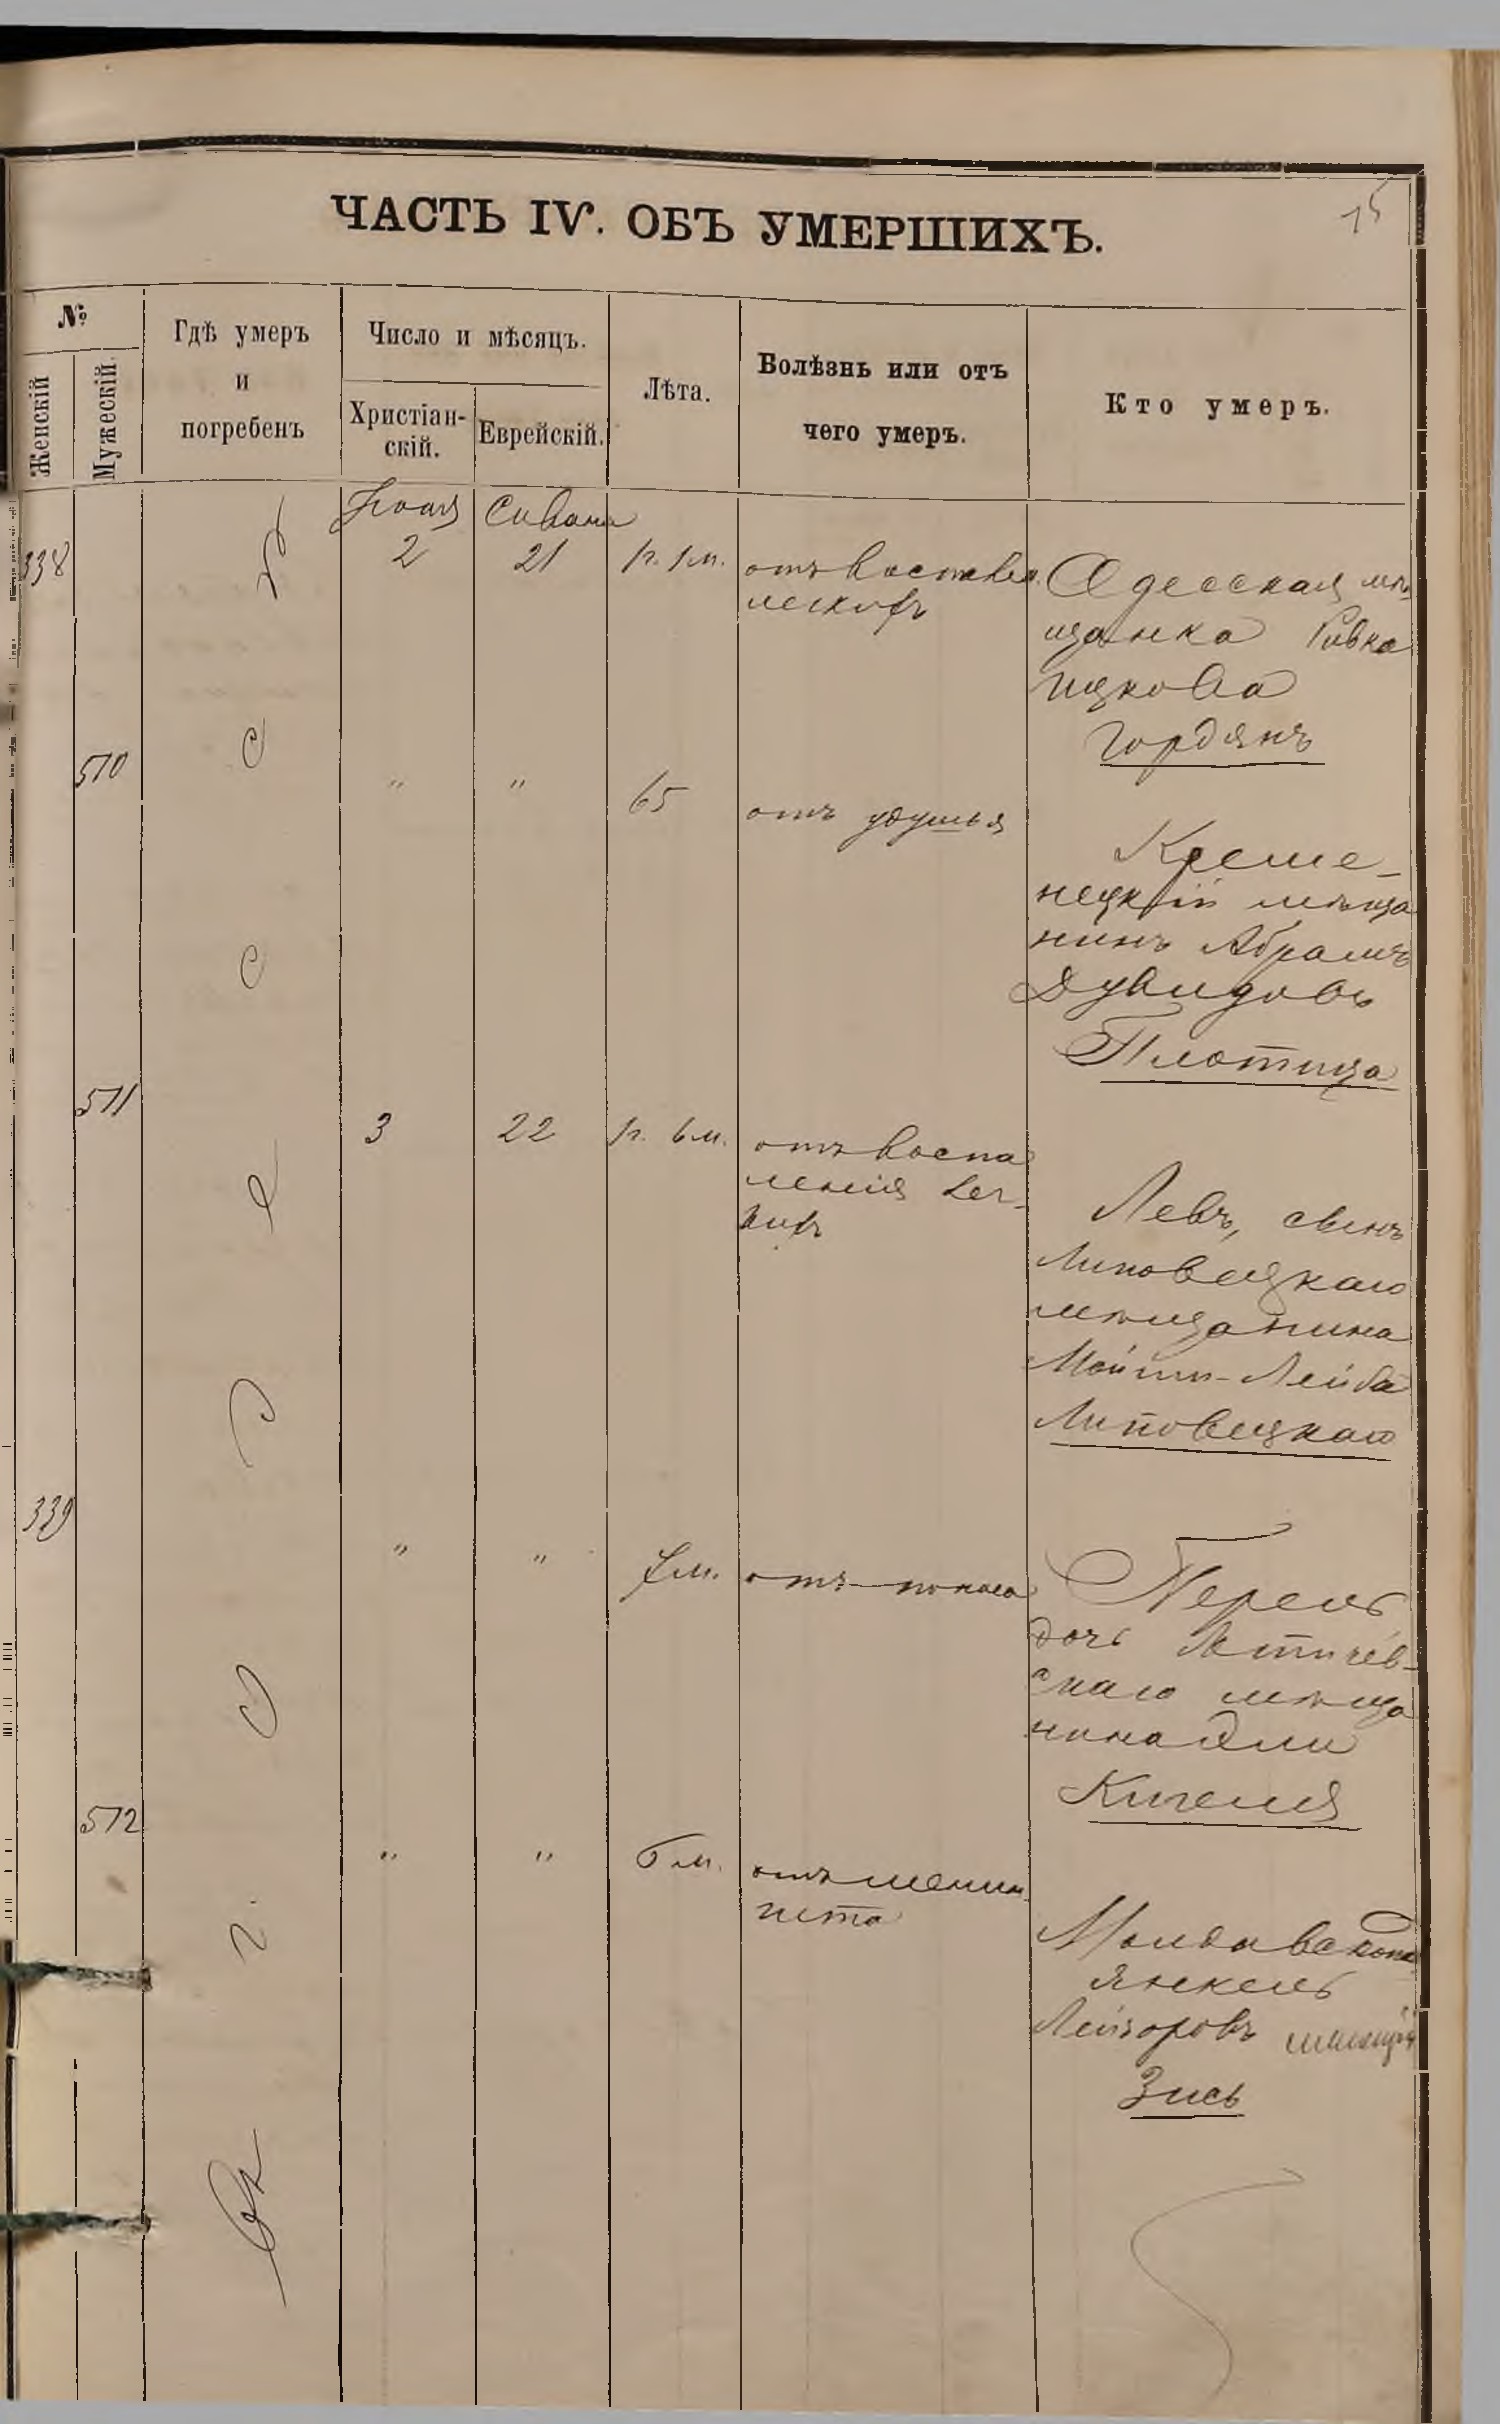 75
ЧАСТЬ IV. ОБЪ УМЕРШИХЪ.
№
Женскій
Мужескій.
Гдѣ умеръ
и
погребенъ
Число и мѣсяцъ.
Христіан-
скій.
Еврейскій.
Лѣта.
Болѣзнь или отъ
чего умеръ.
Кто умеръ.
въ г. Одессѣ
Іюня
Сивана
338
2
21
1г. 1м.
отъ воспален.
легкихъ
Одесская мѣ
щанка Ривка
Ицкова
Гордянъ
510
"
"
65
отъ удушья
Креме-
нецкій мѣща
нинъ Абрамъ
Дувидовъ
Плотица
511
3
22
1г. 6м.
отъ воспа
ленія лег-
кихъ
Левъ, сынъ
Липовецкаго
мѣщанина
Мойши-Лейба
Липовецкаго
339
"
"
7м.
отъ поноса
Перель
дочь Летичев-
скаго мѣща
нина Эли
Кигеля
572
"
"
6м.
отъ менин
гита
Янкель
Лейзоровъ
Зись